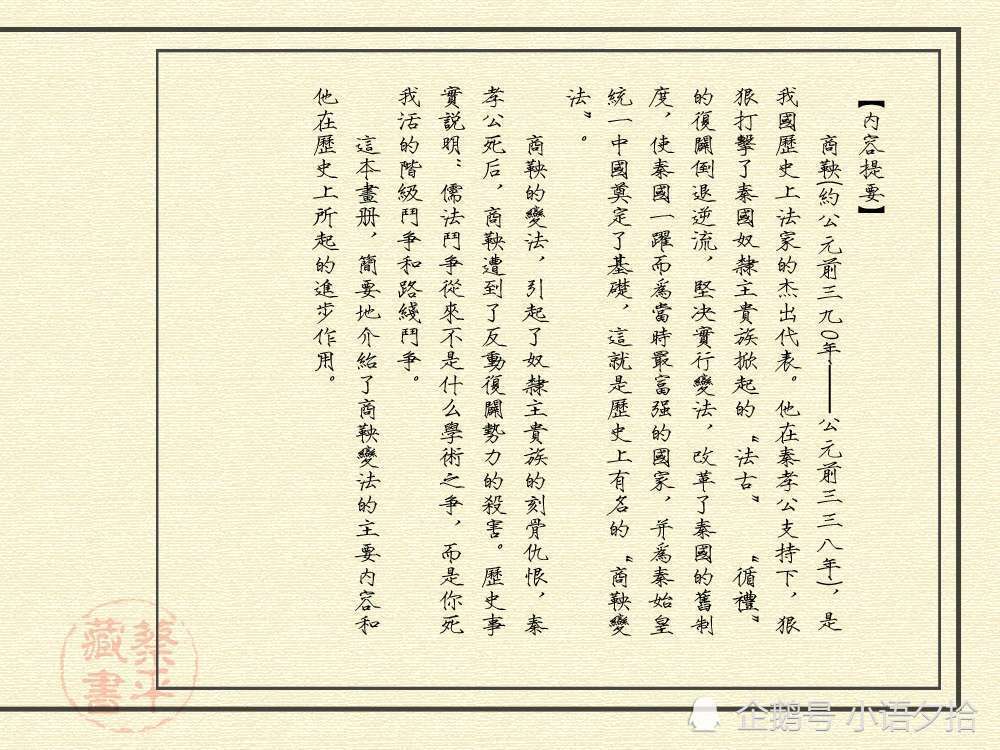 【内容提要】
商鞅(約公元前三九〇年——公元前三三八年)，是
我國歷史上法家的杰出代表。他在秦孝公支持下，狠
狠打擊了秦國奴隸主貴族掀起的“法古”“循禮”
的復闢倒退逆流，堅决實行變法，改革了秦國的舊制
度，使秦國一躍而爲當時最富强的國家，并爲秦始皇
統一中國奠定了基礎，這就是歷史上有名的“商鞅變
法”。
商鞅的變法，引起了奴隸主貴族的刻骨仇恨，秦
孝公死后，商鞅遭到了反動復闢勢力的殺害。歷史事
實説明：儒法鬥争從來不是什么學術之争，而是你死
我活的階級鬥争和路綫鬥争。
這本畫册，簡要地介紹了商鞅變法的主要内容和
他在歷史上所起的進步作用。
蔡平
藏書
企鹅号 小语夕拾